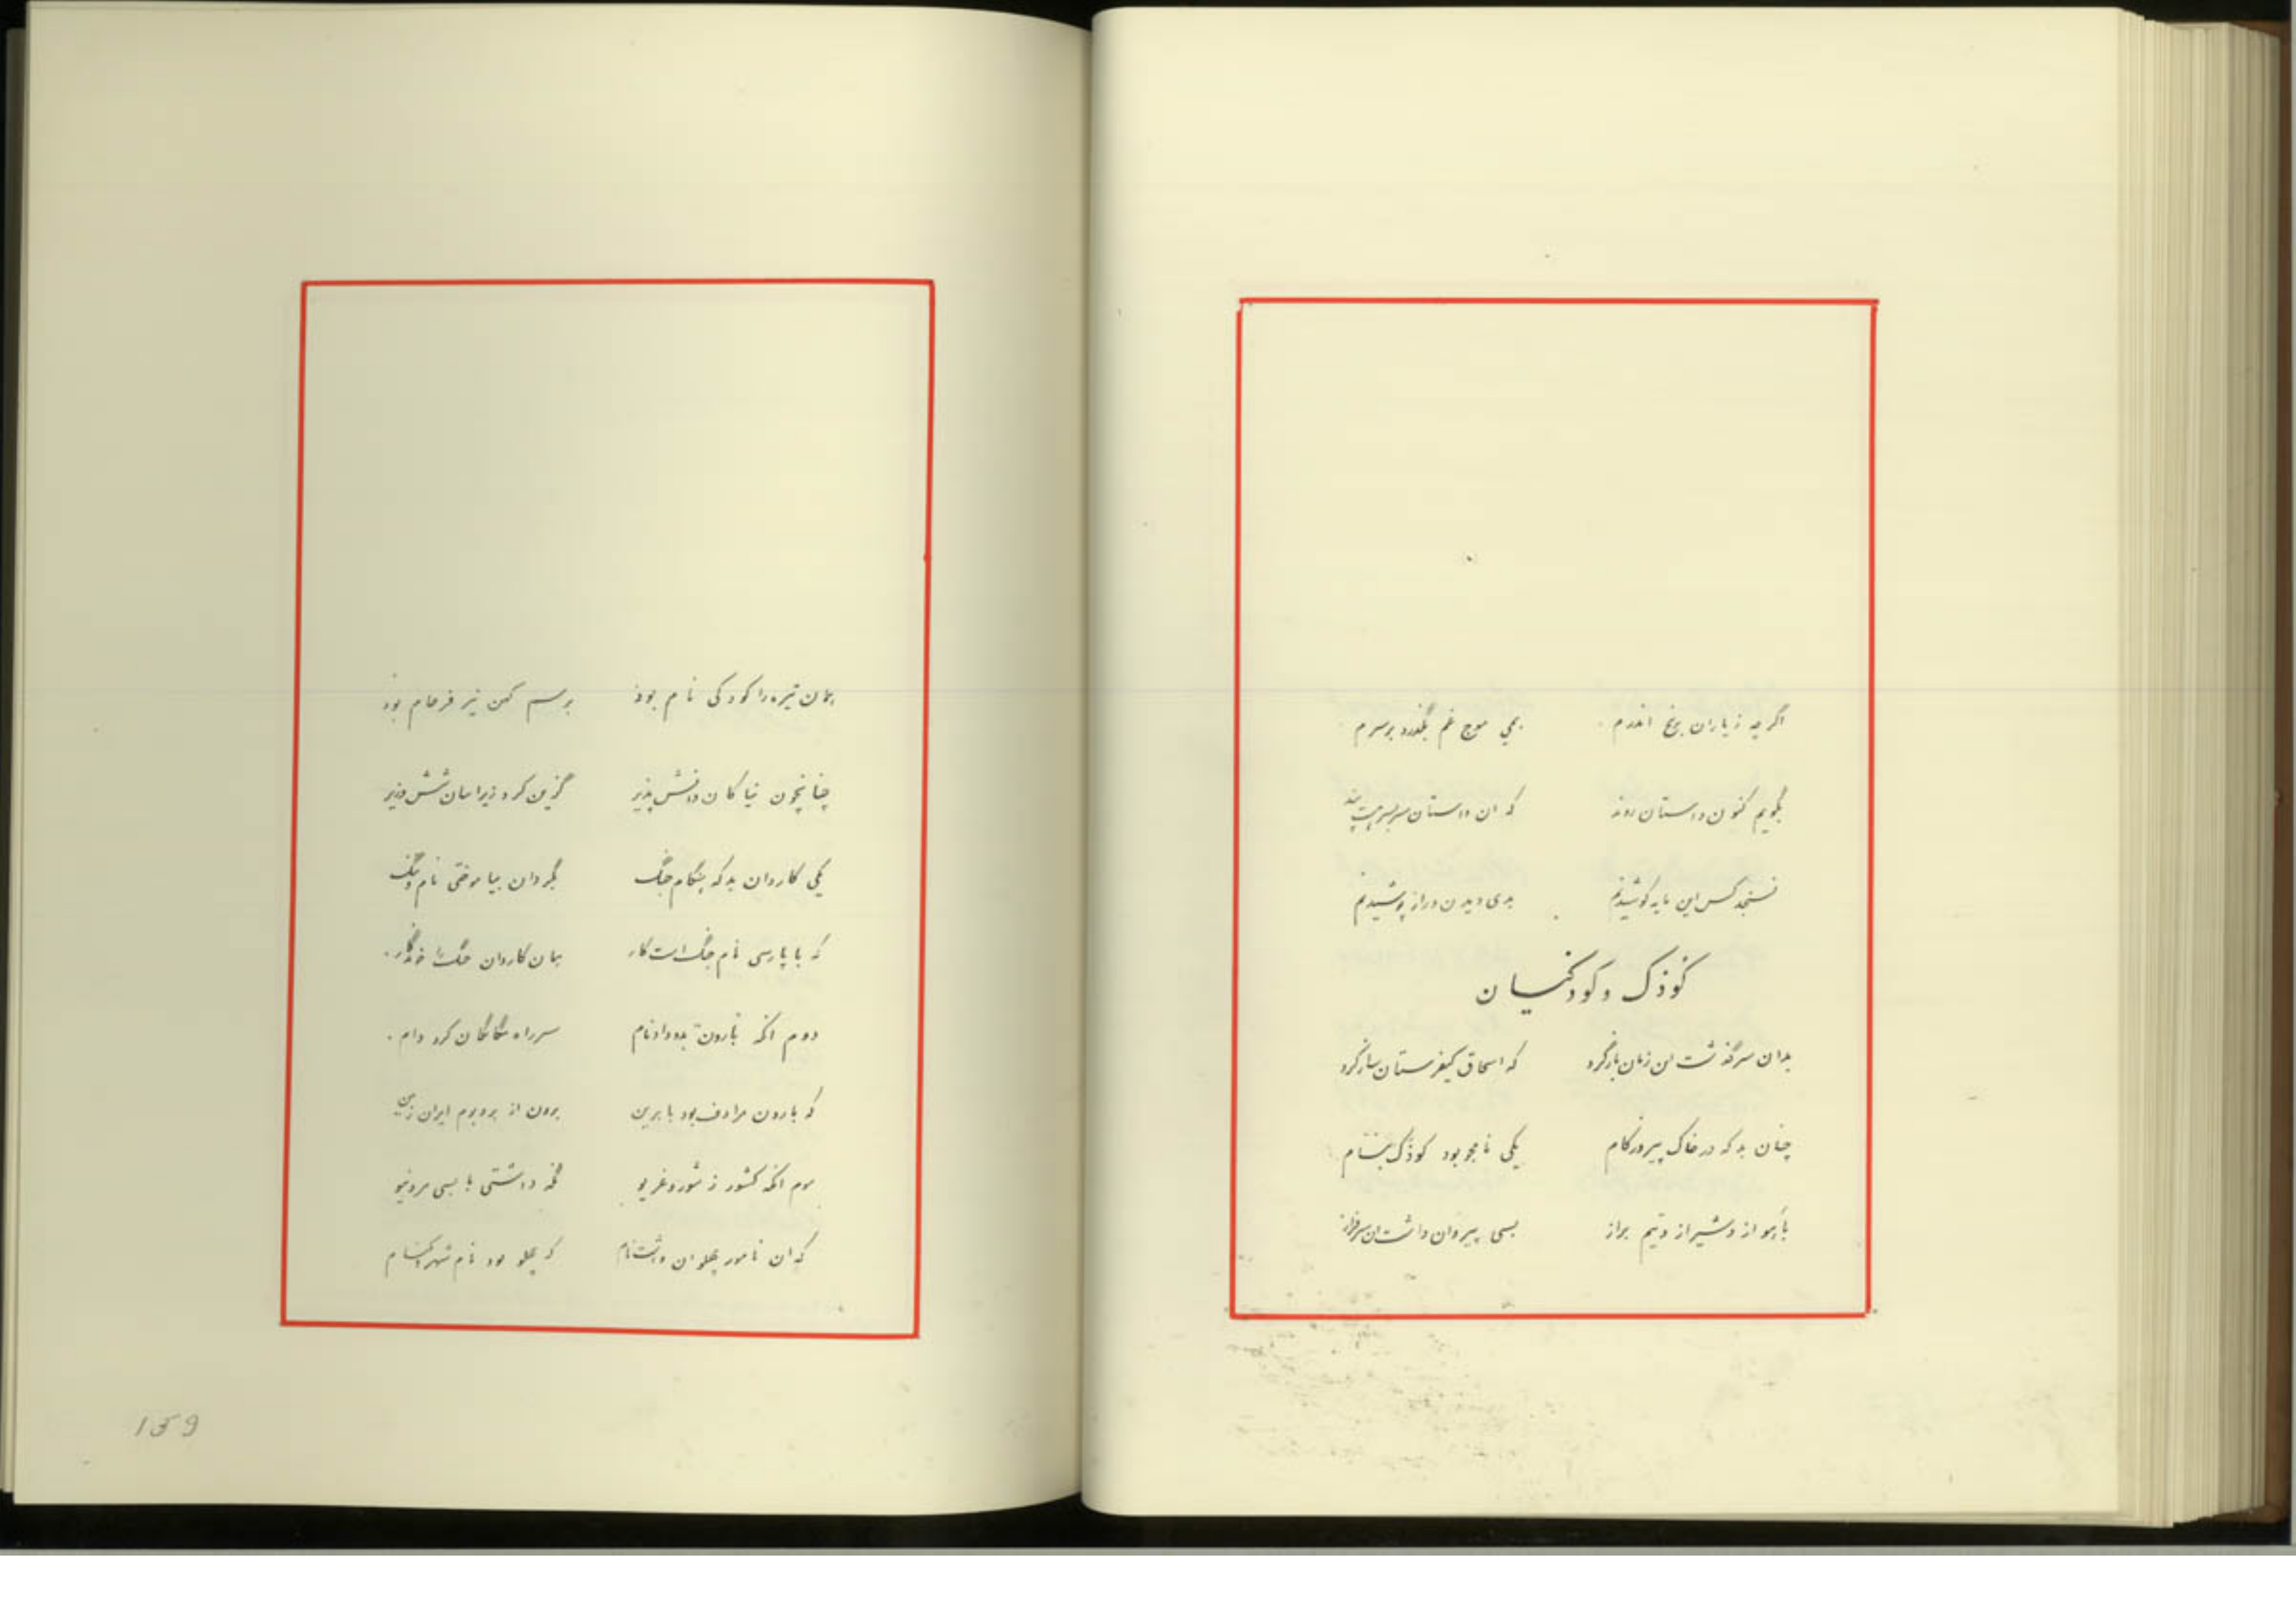 اگر چه ز یاران برنج اندرم همی موج غم بگذرد بر سرم
بگویم کنون داستان روند که ان داستان سربسر هست پند
نسنجد کس این مایه کوشیدنم بدی دیدن و راز پوشیدنم
کوذک و کودکنسیان
بدان سرگذشت ان زمان باز گرد که اسحاق کیفرستان ساز کرد
چنان بد که در خاک پیروزکام یکی نامجو بود کوذک بنام
باهواز و شیراز و تیم براز بسی پیروان داشت ان سرفراز
بمان تیره را کودکی نام بوذ برسم کهن نیز فرجام بوذ
چنانچون نیاکان دانش پذیر گزین کرد زیراسان شش وزیر
یکی کاردان بد که هنگام جنگ بگردان بیاموختی نام و ننگ
که با پارسی نام جنگ است کار بمان کاردان جنگ را
دوم انکه بارون بدو داد نام سر راه کرد دام
که بارون مرادف بود با برین برون از بر و بوم ایران زمین
سوم انکه کشور ز شور و غریو نگه داشتی با بسی مرد نیو
که ان نامور پهلوان داشت نام که پهلو بود نام شهر و کنام
159